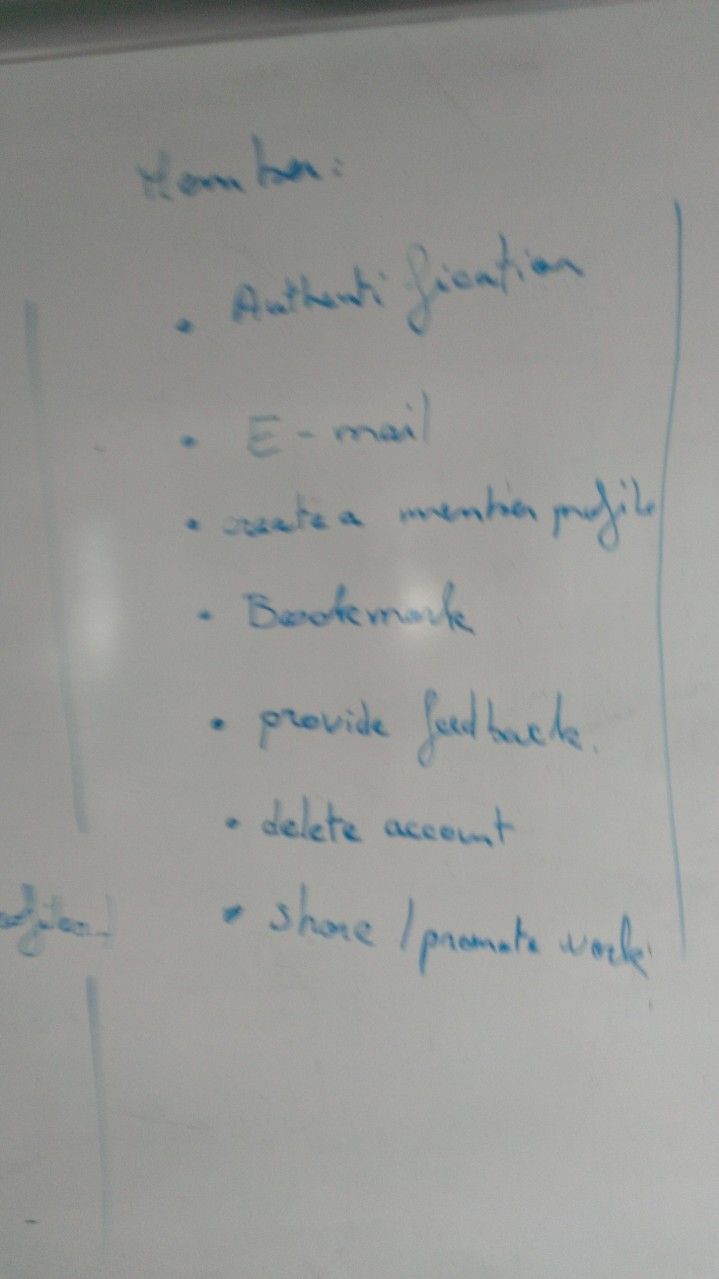 Member:
• Authentification
• E-mail
• create a member profile
• Bookmark
• provide feedback.
• delete account
• share / promote work